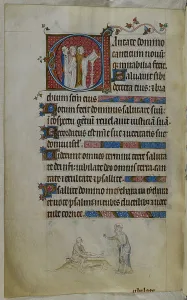 Cantate domino
canticum nouum
quia mirabilia fecit
Saluauit sibi
dextera eius: et bra
chium scm eius
Notum fecit dominus salutare suum
in conspectu gentium reuelauit iusticiam suam
Recordatus est mie sue: et ueritatis sue
domui isrl
Uiderunt omnes termini terre saluta
re dei nri: iubilate deo omnis terra can
tate et exultate et psallite
Psallite domino in cythara in cytha
ra et uoce psalmi: in tubis ductilibus et uoce
tube cornee
iubilate